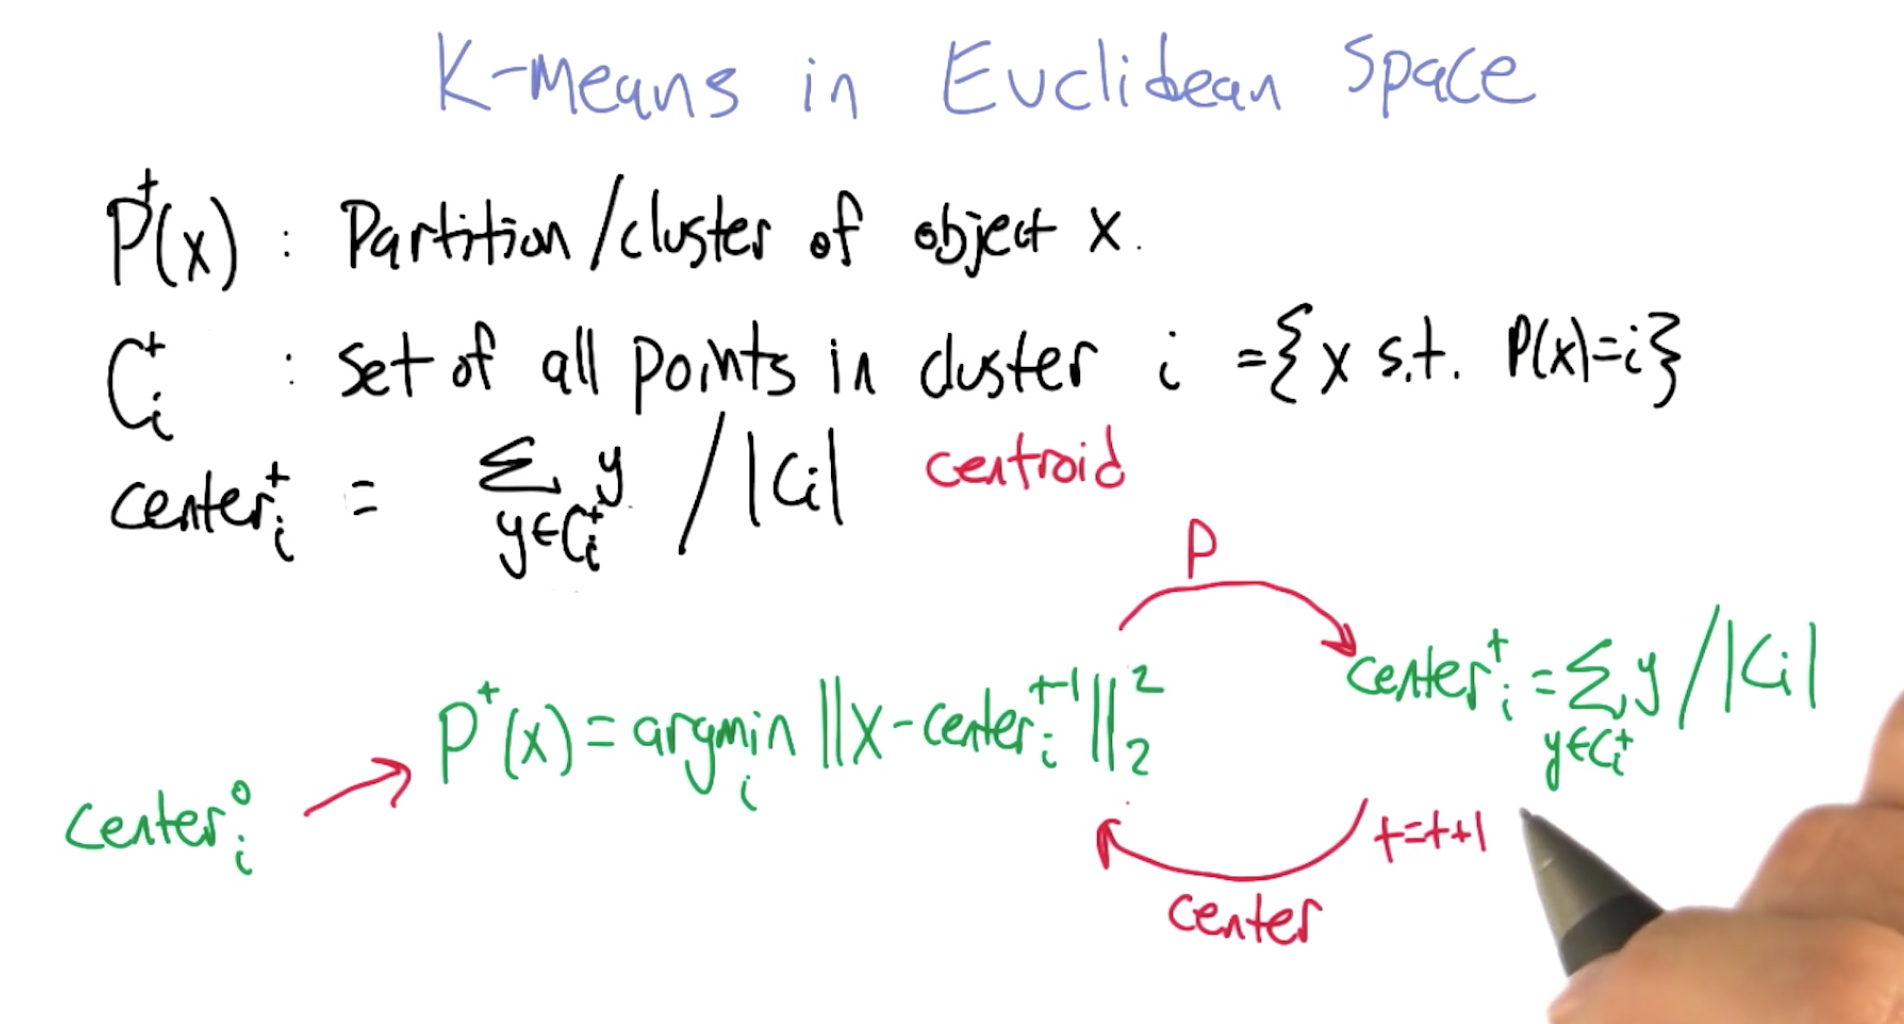 K-means in Euclidean Space
Pᵗ(x) : Partition/cluster of object x.
Cᵢᵗ : set of all points in cluster i = {x s.t. P(x)=i}
centerᵢᵗ = Σ_{y∈Cᵢᵗ} y / |Cᵢ| centroid
P
Pᵗ(x) = argminᵢ ||x - centerᵢᵗ⁻¹||₂²
centerᵢᵗ = Σ_{y∈Cᵢᵗ} y / |Cᵢ|
centerᵢ⁰
t=t+1
center